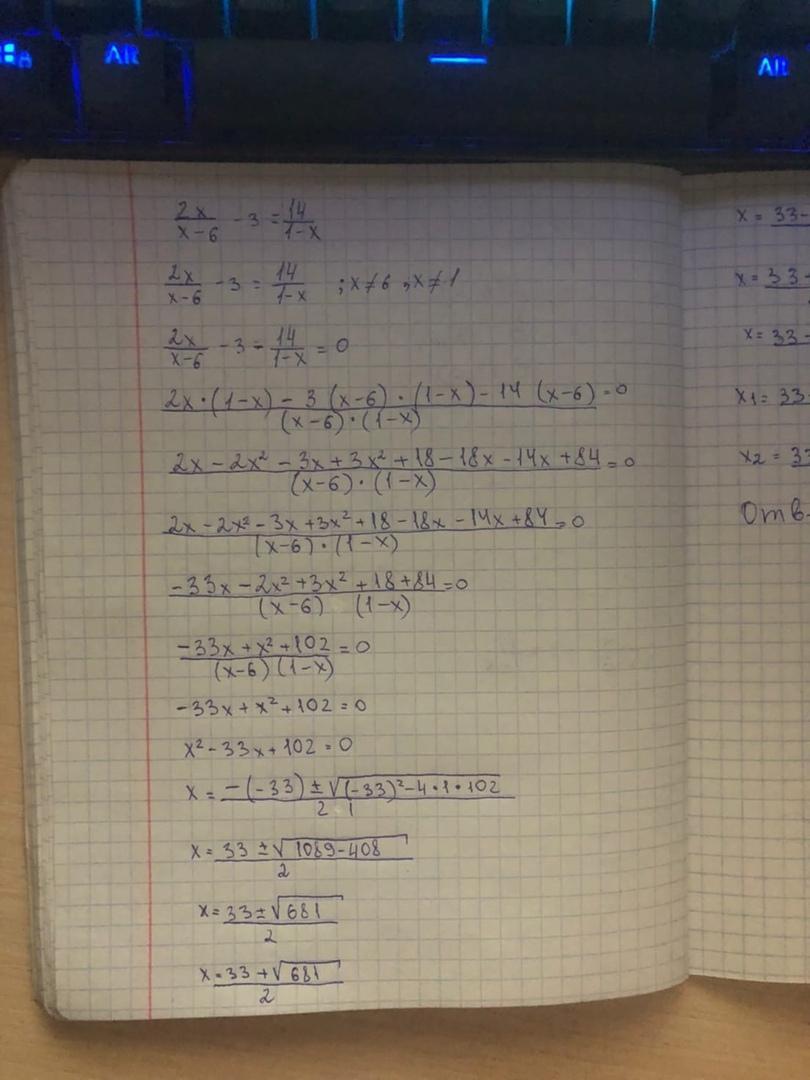 Alt
Alt
2x/(x-6) - 3 = 14/(1-x)
2x/(x-6) - 3 = 14/(1-x) ; x≠6, x≠1
2x/(x-6) - 3 - 14/(1-x) = 0
(2x·(1-x) - 3(x-6)·(1-x) - 14(x-6))/((x-6)·(1-x)) = 0
(2x - 2x² - 3x + 3x² + 18 - 18x - 14x + 84)/((x-6)·(1-x)) = 0
(2x - 2x² - 3x + 3x² + 18 - 18x - 14x + 84)/((x-6)·(1-x)) = 0
(-33x - 2x² + 3x² + 18 + 84)/((x-6) (1-x)) = 0
(-33x + x² + 102)/((x-6)(1-x)) = 0
-33x + x² + 102 = 0
x² - 33x + 102 = 0
x = (-(-33) ± √((-33)² - 4·1·102))/(2 1)
x = (33 ± √(1089-408))/2
x = (33 ± √681)/2
x = (33 + √681)/2
x = 33-
x = 33-
x = 33-
x₁ = 33-
x₂ = 33
Отв.